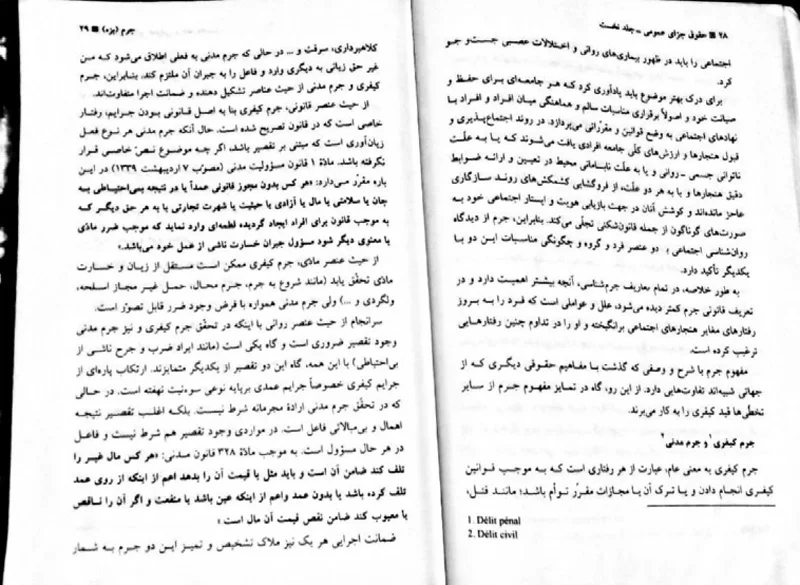 ۲۸ ■ حقوق جزای عمومی ــ جلد نخست
اجتماعی را باید در ظهور بیماری‌های روانی و اختلالات عصبی جست‌و جو
کرد.
برای درک بهتر موضوع باید یادآوری کرد که هر جامعه‌ای برای حفظ و
صیانت خود و اصولاً برقراری مناسبات سالم و هماهنگی میان افراد و افراد با
نهادهای اجتماعی به وضع قوانین و مقرّراتی می‌پردازد. در روند اجتماع‌پذیری و
قبول هنجارها و ارزش‌های کلّی جامعه افرادی یافت می‌شوند که یا به علّت
ناتوانی جسمی ــ روانی و یا به علّت نابسامانی محیط در تعیین و ارائه ضوابط
دقیق هنجارها و یا به هر دو علّت، از فروگشایی کشمکش‌های روند سازگاری
عاجز مانده‌اند و کوشش آنان در جهت بازیابی هویت و ایستار اجتماعی خود به
صورت‌های گوناگون از جمله قانون‌شکنی تجلّی می‌کند. بنابراین، جرم از دیدگاه
روان‌شناسی اجتماعی با دو عنصر فرد و گروه و چگونگی مناسبات این دو با
یکدیگر تأکید دارد.
به طور خلاصه، در تمام تعاریف جرم‌شناسی، آنچه بیشتر اهمیت دارد و در
تعریف قانونی جرم کمتر دیده می‌شود، علل و عواملی است که فرد را به بروز
رفتارهای مغایر هنجارهای اجتماعی برانگیخته و او را در تداوم چنین رفتارهایی
ترغیب کرده است.
مفهوم جرم با شرح و وصفی که گذشت با مفاهیم حقوقی دیگری که از
جهاتی شبیه‌اند تفاوت‌هایی دارد. از این رو، گاه در تمایز مفهوم جرم از سایر
تخطّی‌ها قید کیفری را به کار می‌برند.
جرم کیفری۱ و جرم مدنی۲
جرم کیفری به معنی عام، عبارت از هر رفتاری است که به موجب قوانین
کیفری انجام دادن و یا ترک آن با مجازات مقرّر توأم باشد؛ مانند قتل،
1. Délit pénal
2. Délit civil
جرم (بزه) ■ ۲۹
کلاهبرداری، سرقت و ... در حالی که جرم مدنی به فعلی اطلاق می‌شود که من
غیر حق زیانی به دیگری وارد و فاعل را به جبران آن ملتزم کند. بنابراین، جرم
کیفری و جرم مدنی از حیث عناصر تشکیل دهنده و ضمانت اجرا متفاوت‌اند.
از حیث عنصر قانونی، جرم کیفری بنا به اصل قانونی بودن جرایم، رفتار
خاصی است که در قانون تصریح شده است. حال آنکه جرم مدنی هر نوع فعل
زیان‌آوری است که مبتنی بر تقصیر باشد، اگر چه موضوع نصّ خاصی قرار
نگرفته باشد. مادّهٔ ۱ قانون مسؤولیت مدنی (مصوّب ۷ اردیبهشت ۱۳۳۹) در این
باره مقرّر می‌دارد: «هر کس بدون مجوز قانونی عمداً یا در نتیجه بی‌احتیاطی به
جان یا سلامتی یا مال یا آزادی یا حیثیت یا شهرت تجارتی یا به هر حق دیگر که
به موجب قانون برای افراد ایجاد گردیده لطمه‌ای وارد نماید که موجب ضرر مادّی
یا معنوی دیگر شود مسؤول جبران خسارت ناشی از عمل خود می‌باشد.»
از حیث عنصر مادّی، جرم کیفری ممکن است مستقل از زیان و خسارت
مادّی تحقّق یابد (مانند شروع به جرم، جرم محال، حمل غیر مجاز اسلحه،
ولگردی و ...) ولی جرم مدنی همواره با فرض وجود ضرر قابل تصوّر است.
سرانجام از حیث عنصر روانی با اینکه در تحقّق جرم کیفری و نیز جرم مدنی
وجود تقصیر ضروری است و گاه یکی است (مانند ایراد ضرب و جرح ناشی از
بی‌احتیاطی) با این همه، گاه این دو تقصیر از یکدیگر متمایزند. ارتکاب پاره‌ای از
جرایم کیفری خصوصاً جرایم عمدی برپایه نوعی سوءنیت نهفته است. در حالی
که در تحقّق جرم مدنی ارادهٔ مجرمانه شرط نیست. بلکه اغلب تقصیر نتیجه
اهمال و بی‌مبالاتی فاعل است. در مواردی وجود تقصیر هم شرط نیست و فاعل
در هر حال مسؤول است. به موجب مادّهٔ ۳۲۸ قانون مدنی: «هر کس مال غیر را
تلف کند ضامن آن است و باید مثل یا قیمت آن را بدهد اعم از اینکه از روی عمد
تلف کرده باشد یا بدون عمد واعم از اینکه عین باشد یا منفعت و اگر آن را ناقص
یا معیوب کند ضامن نقص قیمت آن مال است.»
ضمانت اجرایی هر یک نیز ملاک تشخیص و تمیز این دو جرم به شمار